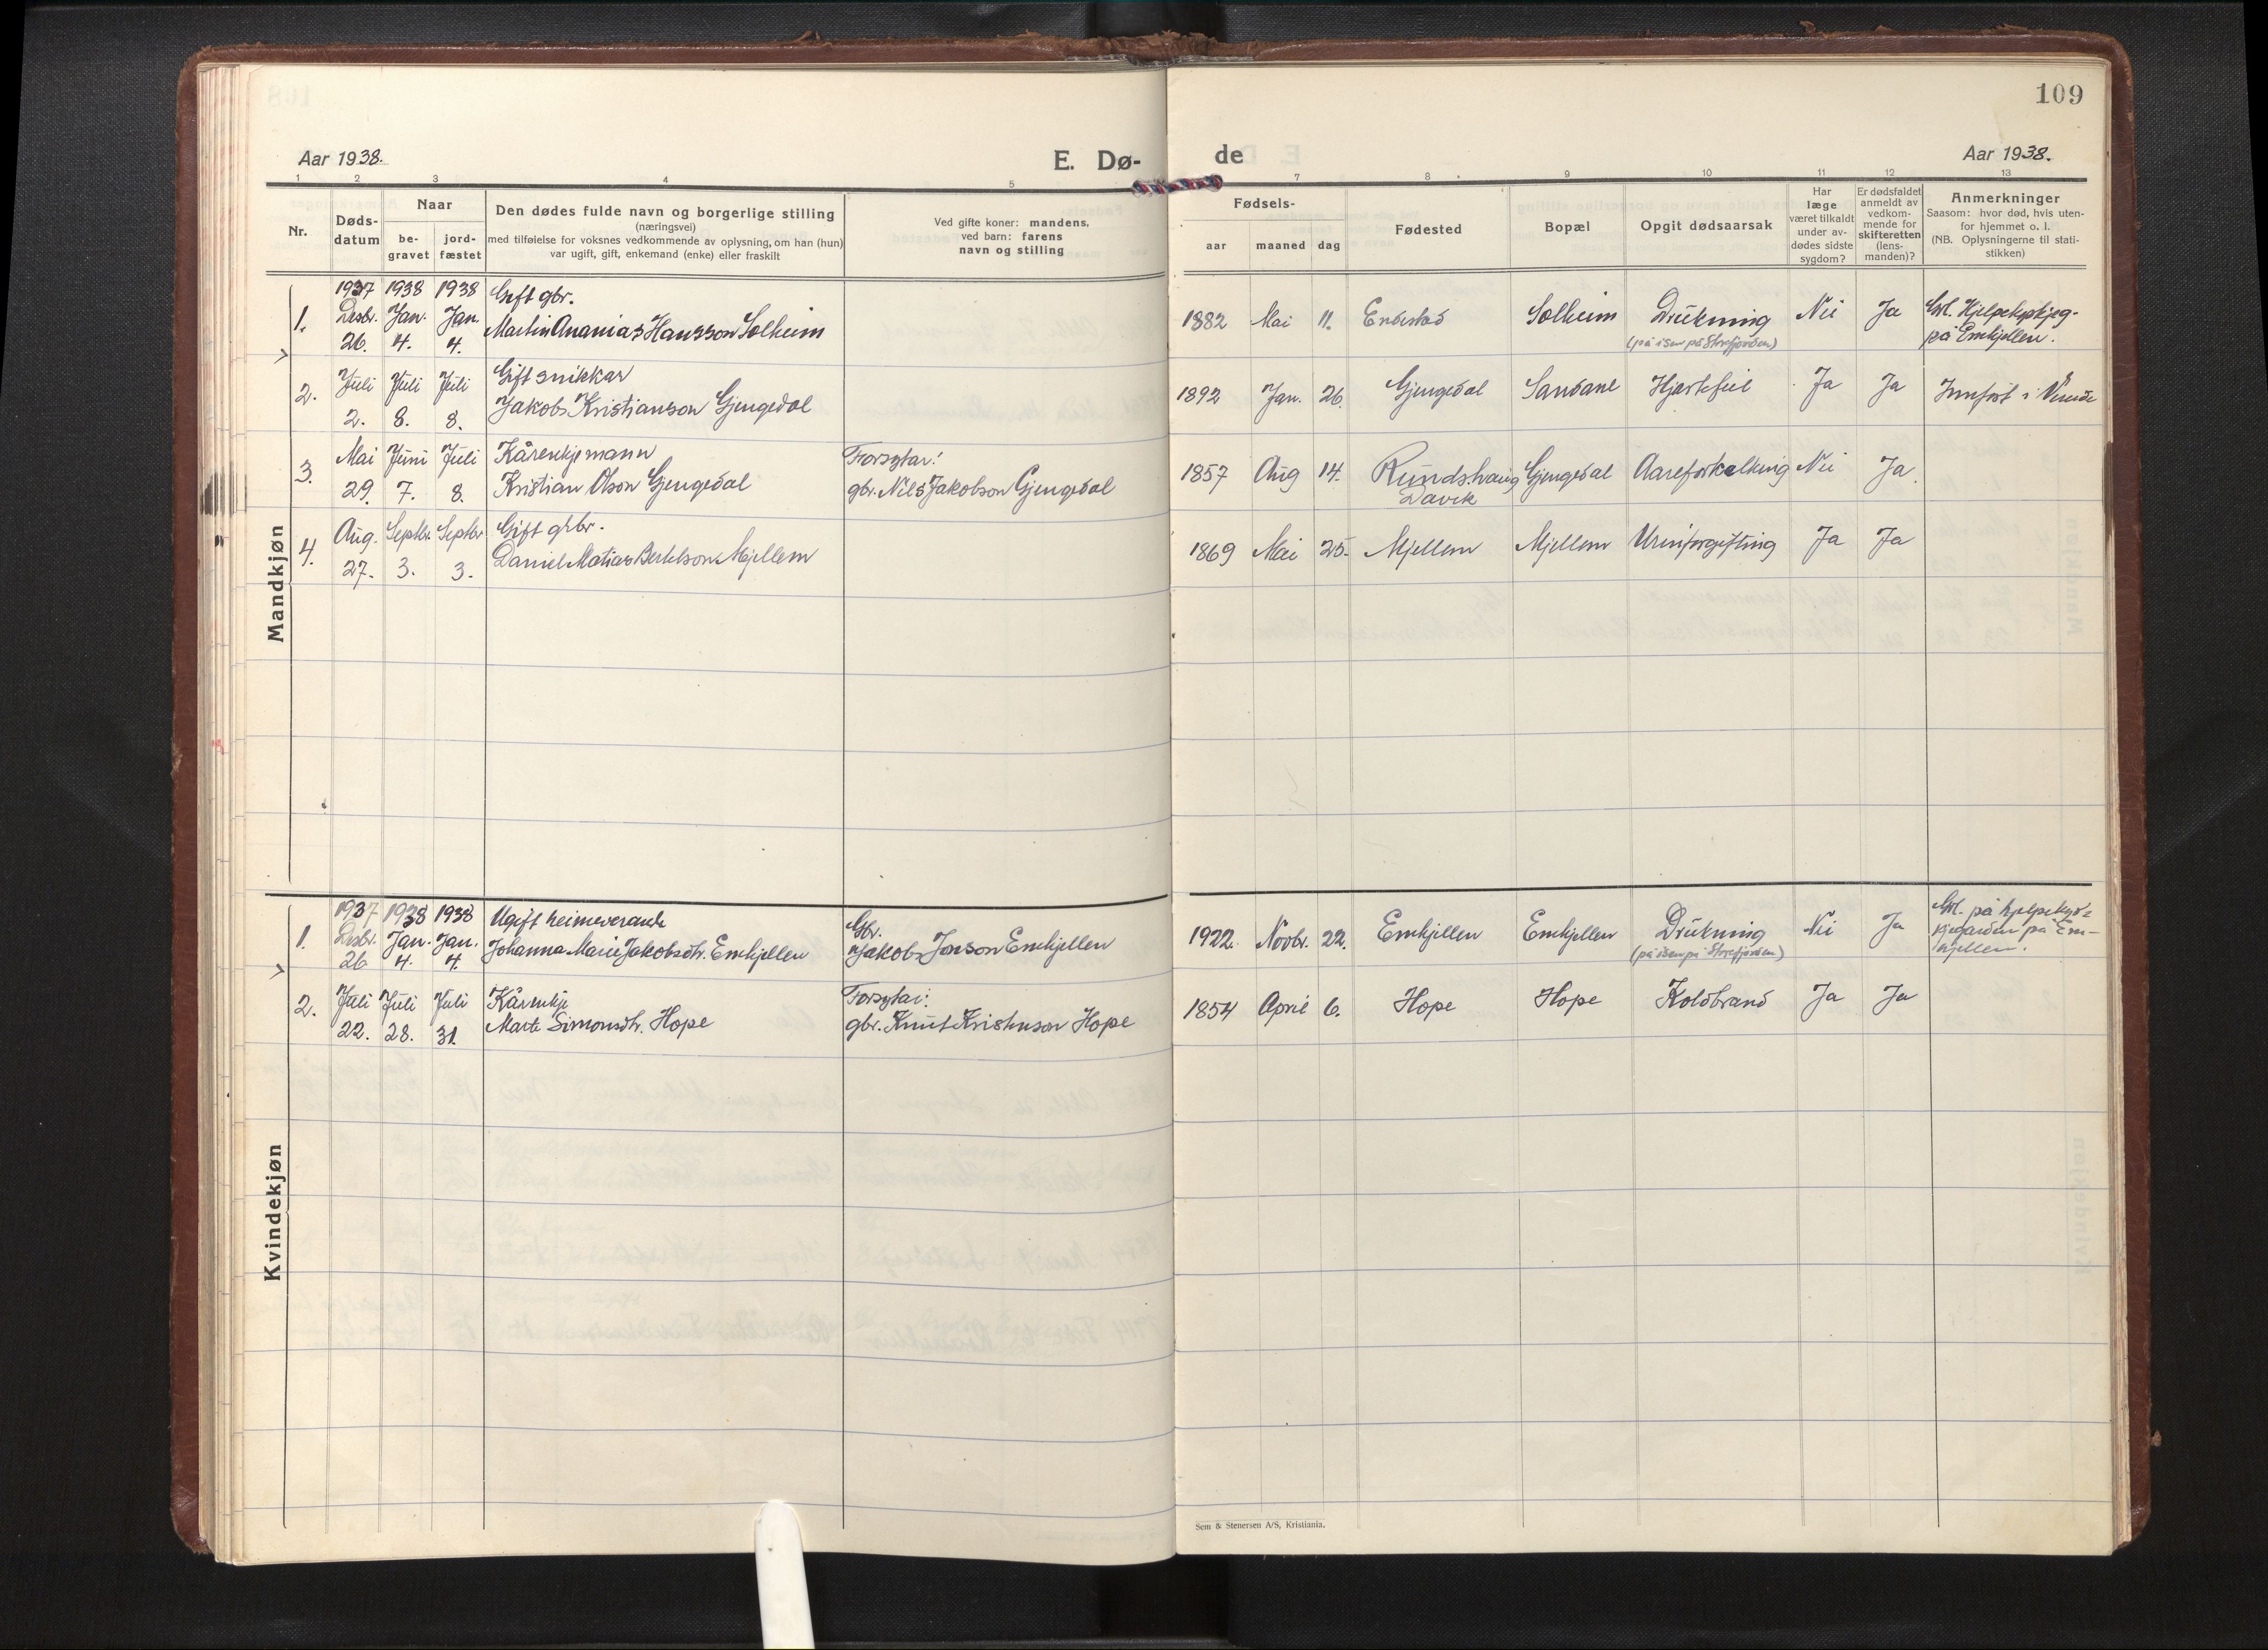 109
Aar 1938.
E. Dø-
de
Aar 1938.
1 2 3 4 5 7 8 9 10 11 12 13
Nr.
Døds-
datum
Naar
be-
gravet
jord-
fæstet
Den dødes fulde navn og borgerlige stilling
(næringsvei)
med tilføielse for voksnes vedkommende av oplysning, om han (hun)
var ugift, gift, enkemand (enke) eller fraskilt
Ved gifte koner: mandens,
ved barn: farens
navn og stilling
Fødsels-
aar
maaned
dag
Fødested
Bopæl
Opgit dødsaarsak
Har
læge
været tilkaldt
under av-
dødes sidste
sygdom?
Er dødsfaldet
anmeldt av
vedkom-
mende for
skifteretten
(lens-
manden)?
Anmerkninger
Saasom: hvor død, hvis uten-
for hjemmet o. l.
(NB. Oplysningerne til stati-
stikken)
Mandkjøn
1937 1938 1938 Gift gbr.
1. Desbr. Jan. Jan. Martin Ananias Hansson Solheim 1882 Mai 11. Solheim Drukning Nei Ja
26. 4. 4. (på isen på Storefjorden) på Emhjellen.
2. Juli Juli Juli Gift snikkar
2. 8. 8. Jakob Kristianson Gjengedal 1892 Jan. 26. Gjengedal Sandane Hjartefeil Ja Ja Innført i
3. Mai Juni Juli Kårenkjemann Forsytar:
29. 7. 8. Kristian Olson Gjengedal gbr. Nils Jakobson Gjengedal 1857 Aug 14. Davik Gjengedal Aareforkalking Nei Ja.
4. Aug. Septbr. Septbr. Gift gbr.
27. 3. 3. Daniel Matias Bertelson Mjellem 1869 Mai 25. Mjellem Mjellem Urinforgifting Ja Ja
Kvindekjøn
1937 1938 1938 Ugift heimeverande Gbr.
1. Desbr. Jan. Jan. Johanna Marie Jakobsdtr. Emhjellen Jakob Jonson Emhjellen 1922. Novbr. 22. Emhjellen Emhjellen Drukning Nei Ja
26 4. 4. (på isen på Storefjorden)
2. Juli Juli Juli Kårenkje Forsytar:
22. 28. 31. Marte Simonsdtr. Hope gbr. Knut Kristenson Hope 1854 April 6. Hope Hope Koldbrand Ja Ja
Sem & Stenersen A/S, Kristiania.